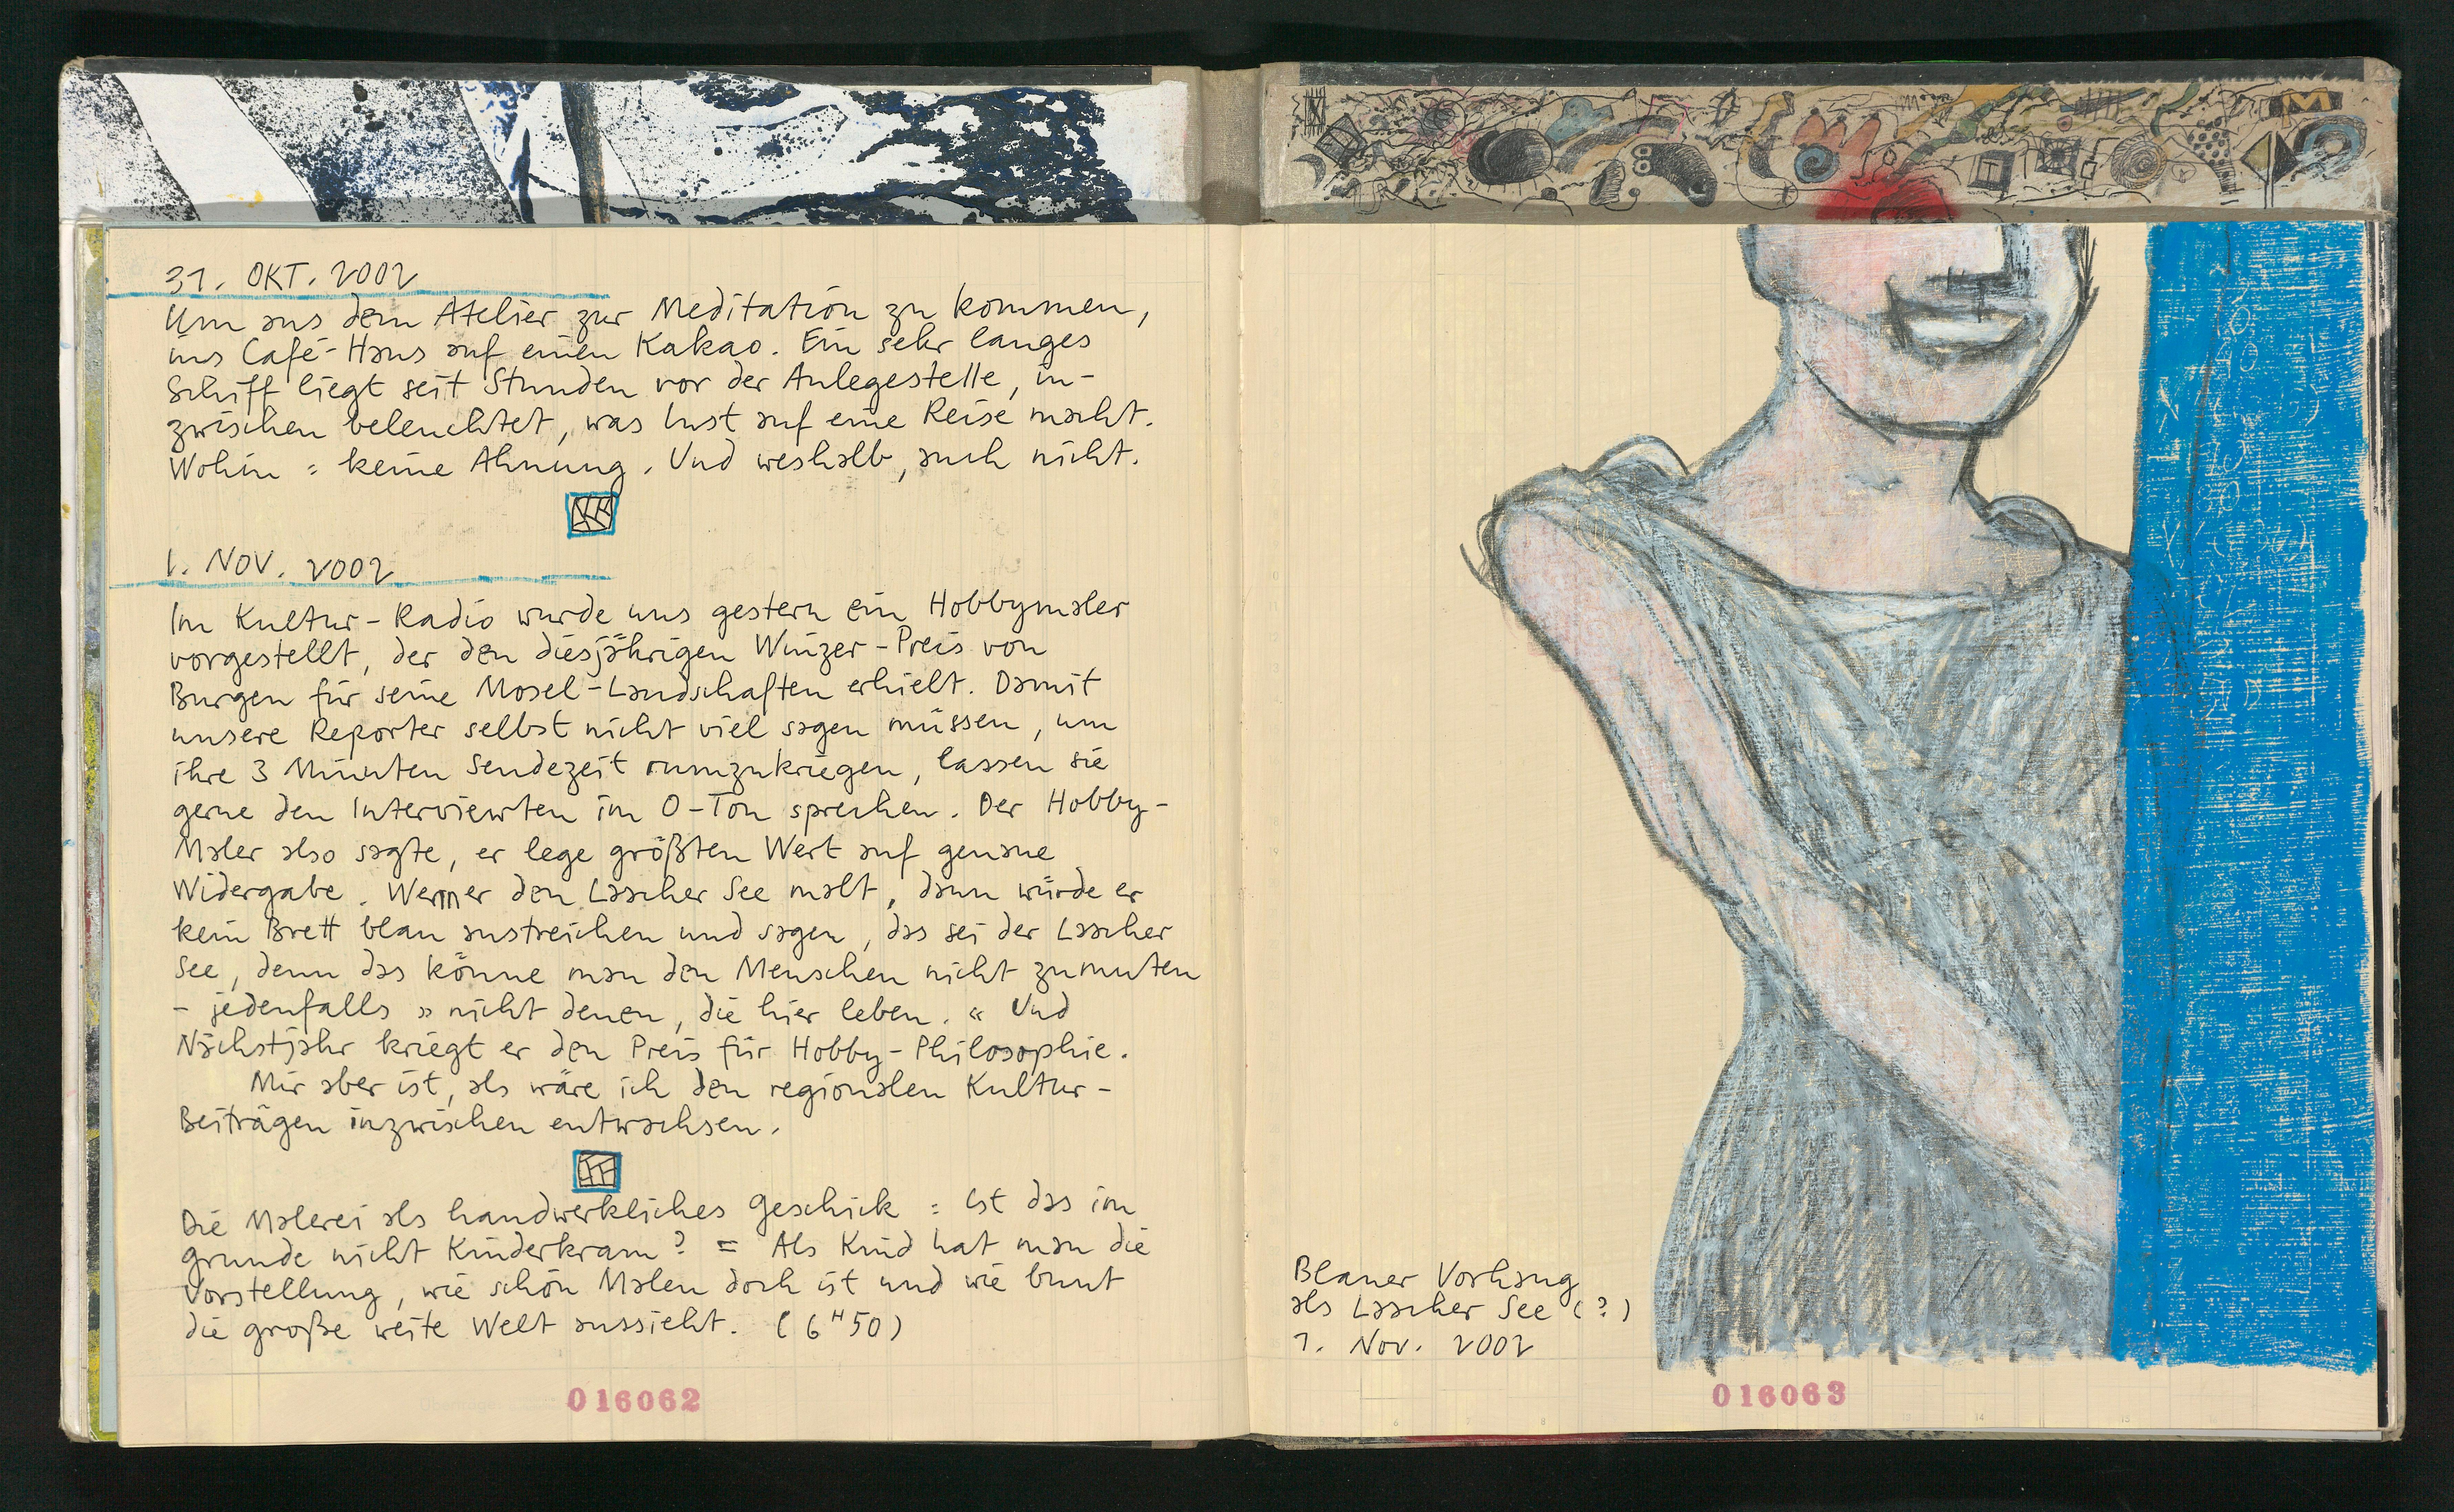 31. OKT. 2002
Um aus dem Atelier zur Meditation zu kommen,
ins Café-Haus auf einen Kakao. Ein sehr langes
Schiff liegt seit Stunden vor der Anlegestelle, in-
zwischen beleuchtet, was Lust auf eine Reise macht.
Wohin = keine Ahnung. Und weshalb, auch nicht.
1. NOV. 2002
Im Kultur-Radio wurde uns gestern ein Hobbymaler
vorgestellt, der den diesjährigen Winzer-Preis von
Burgen für seine Mosel-Landschaften erhielt. Damit
unsere Reporter selbst nicht viel sagen müssen, um
ihre 3 Minuten Sendezeit rumzukriegen, lassen sie
gerne den Interviewten im O-Ton sprechen. Der Hobby-
Maler also sagte, er lege größten Wert auf genaue
Widergabe. Wenn er den Laacher See malt, dann würde er
kein Brett blau anstreichen und sagen, das sei der Laacher
See, denn das könne man den Menschen nicht zumuten
- jedenfalls » nicht denen, die hier leben. « Und
Nächstjahr kriegt er den Preis für Hobby-Philosophie.
Mir aber ist, als wäre ich den regionalen Kultur-
Beiträgen inzwischen entwachsen.
Die Malerei als handwerkliches Geschick = Ist das im
Grunde nicht Kinderkram? = Als Kind hat man die
Vorstellung, wie schön Malen doch ist und wie bunt
die große weite Welt aussieht. (6ᴴ50)
016062
Blauer Vorhang
als Laacher See (?)
1. Nov. 2002
016063